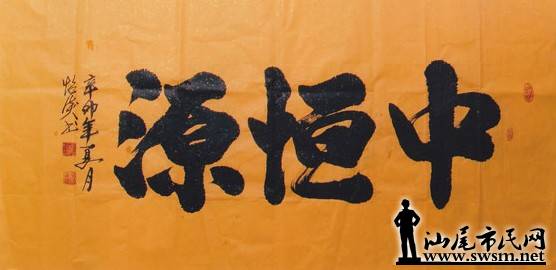 中恒源
辛卯年夏月
汕尾市民网
www.swsm.net